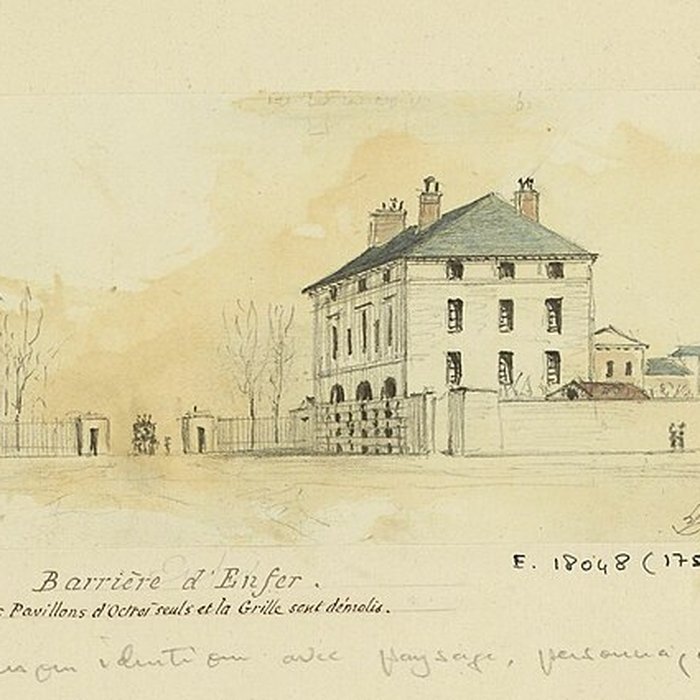 E. 18048 (175
Barrière d'Enfer.
Pavillons d'Octroi seuls et la Grille sont démolis.
identique avec paysage, personnag